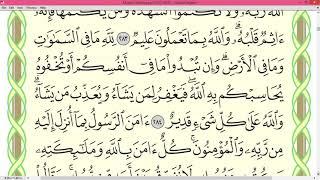 ٱللَّهَ رَبَّهُۥ ۗ وَلَا تَكْتُمُوا۟ ٱلشَّهَـٰدَةَ ۚ وَمَن يَكْتُمْهَا فَإِنَّهُۥٓ
ءَاثِمٌ قَلْبُهُۥ ۗ وَٱللَّهُ بِمَا تَعْمَلُونَ عَلِيمٌ ٢٨٣ لِّلَّهِ مَا فِى ٱلسَّمَـٰوَٰتِ
وَمَا فِى ٱلْأَرْضِ ۗ وَإِن تُبْدُوا۟ مَا فِىٓ أَنفُسِكُمْ أَوْ تُخْفُوهُ
يُحَاسِبْكُم بِهِ ٱللَّهُ ۖ فَيَغْفِرُ لِمَن يَشَآءُ وَيُعَذِّبُ مَن يَشَآءُ ۗ
وَٱللَّهُ عَلَىٰ كُلِّ شَىْءٍ قَدِيرٌ ٢٨٤ ءَامَنَ ٱلرَّسُولُ بِمَآ أُنزِلَ إِلَيْهِ
مِن رَّبِّهِۦ وَٱلْمُؤْمِنُونَ ۚ كُلٌّ ءَامَنَ بِٱللَّهِ وَمَلَـٰٓئِكَتِهِۦ